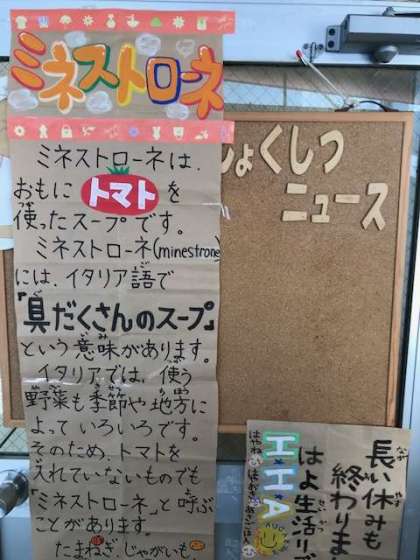 ミネストローネ
ミネストローネは、
おもにトマトを
使ったスープです。
ミネストローネ(minestrone)
には、イタリア語で
「具だくさんのスープ」
という意味があります。
イタリアでは、使う
野菜も季節や地方に
よっていろいろです。
そのため、トマトを
入れていないものでも
「ミネストローネ」と呼ぶ
ことがあります。
たまねぎ、じゃがいも、
しょくしつ
ニュース
長い休みも
終わりま
はよ生活リズ